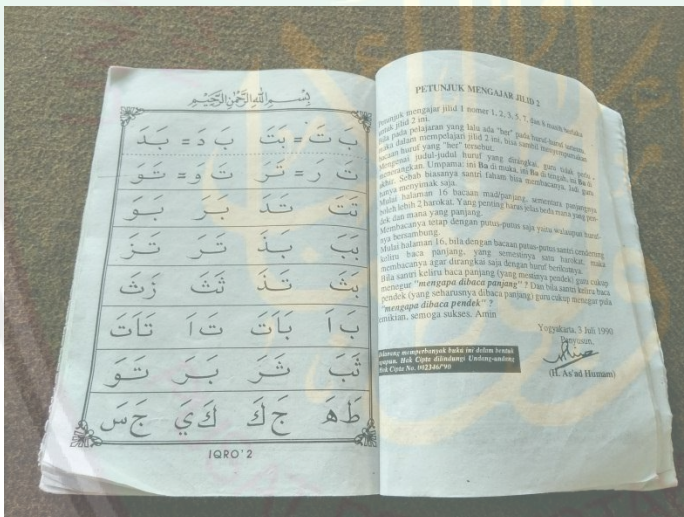 بِسْمِ اللهِ الرَّحْمٰنِ الرَّحِيْمِ
بَ تَ = بَتَ بَ دَ = بَدَ
تَ رَ = تَرَ تَ وَ = تَوَ
تَتَ تَدَ بَرَ بَوَ
بَبَ بَذَ تَرَ تَزَ
بَثَ تَذَ ثَثَ رَثَ
بَ اَ بَاتَ تَ اَ تَاتَ
ثَبَ ثَرَ بَرَ تَوَ
طَ هَ جَ كَ كَ يَ جَ سَ
IQRO'2
PETUNJUK MENGAJAR JILID 2
Petunjuk mengajar jilid 1 nomer 1, 2, 3, 5, 7, dan 8 masih berlaku
untuk jilid 2 ini.
Bila pada pelajaran yang lalu ada "her" pada huruf-huruf tertentu,
maka dalam mempelajari jilid 2 ini, bisa sambil menyempurnakan
bacaan huruf yang "her" tersebut.
Mengenai judul-judul huruf yang dirangkai, guru tidak perlu
menerangkan. Umpama: ini Ba di muka, ini Ba di tengah, ini Ba di
akhir. Sebab biasanya santri faham bisa membacanya. Jadi guru
hanya menyimak saja.
Mulai halaman 16 bacaan mad/panjang, sementara panjangnya
boleh lebih 2 harokat. Yang penting harus jelas beda mana yang pen-
dek dan mana yang panjang.
Membacanya tetap dengan putus-putus saja yaitu walaupun huruf-
nya bersambung.
Mulai halaman 16, bila dengan bacaan putus-putus santri cenderung
keliru baca panjang, yang semestinya satu harokat, maka
membacanya agar dirangkai saja dengan huruf berikutnya.
Bila santri keliru baca panjang (yang mestinya pendek) guru cukup
menegur "mengapa dibaca panjang" ? Dan bila santri keliru baca
pendek (yang seharusnya dibaca panjang) guru cukup menegur pula
"mengapa dibaca pendek" ?
Demikian, semoga sukses. Amin
Yogyakarta, 3 Juli 1990
Penyusun,
(H. As'ad Humam)
Dilarang memperbanyak buku ini dalam bentuk
apapun. Hak Cipta dilindungi Undang-undang
Hak Cipta No. 002346/'90